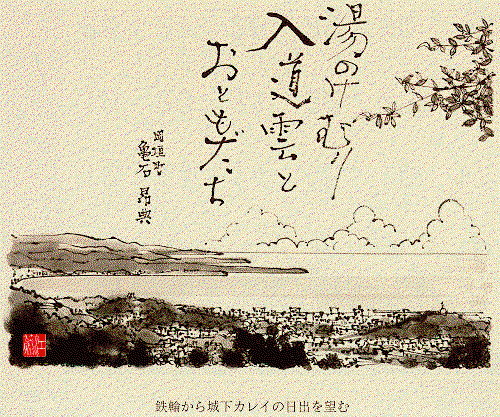 湯のけむり
入道雲と
おともだち
岡垣町
亀石 昂典
鉄輪から城下カレイの日出を望む